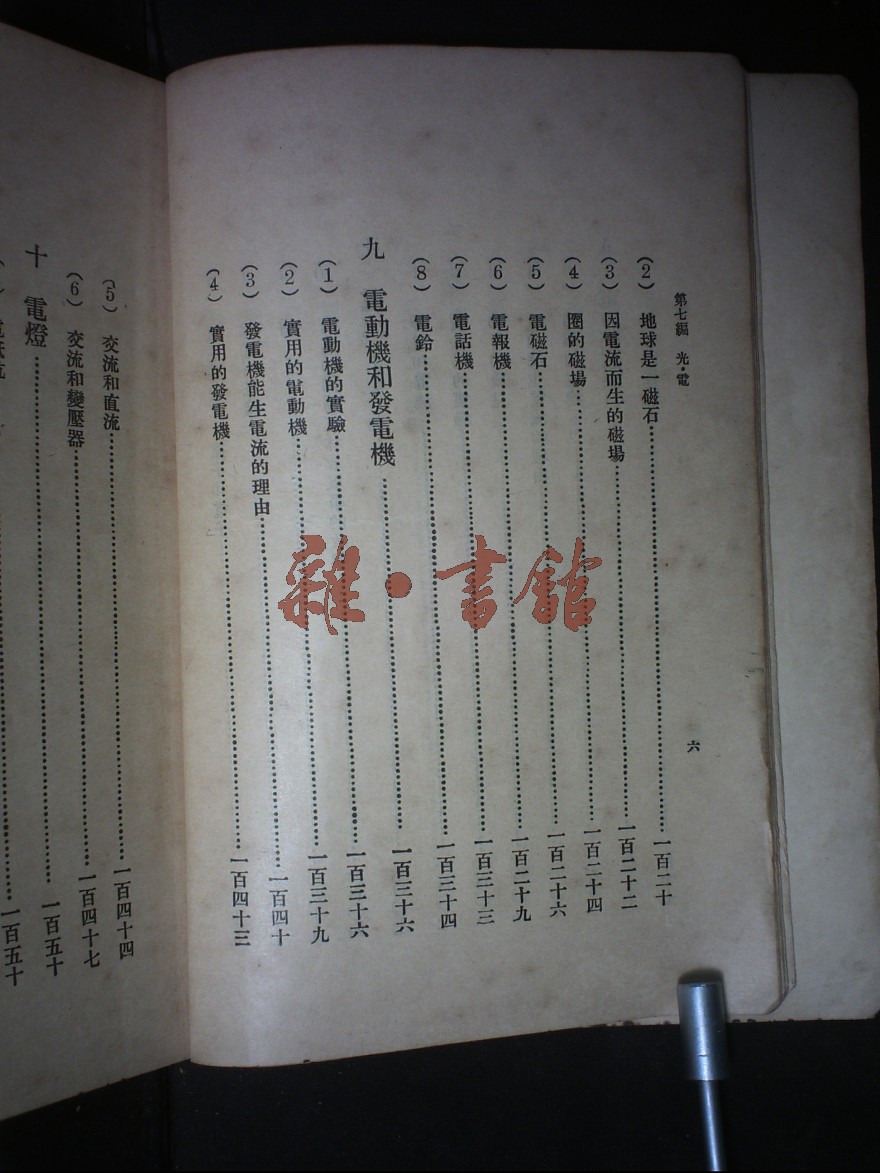 第七編 光·電
六
(2) 地球是一磁石……一百二十
(3) 因電流而生的磁場……一百二十二
(4) 圈的磁場……一百二十四
(5) 電磁石……一百二十六
(6) 電報機……一百二十九
(7) 電話機……一百三十三
(8) 電鈴……一百三十四
九 電動機和發電機……一百三十六
(1) 電動機的實驗……一百三十六
(2) 實用的電動機……一百三十九
(3) 發電機能生電流的理由……一百四十
(4) 實用的發電機……一百四十三
(5) 交流和直流……一百四十四
(6) 交流和變壓器……一百四十七
十 電燈……一百五十
一百五十
雜·書館